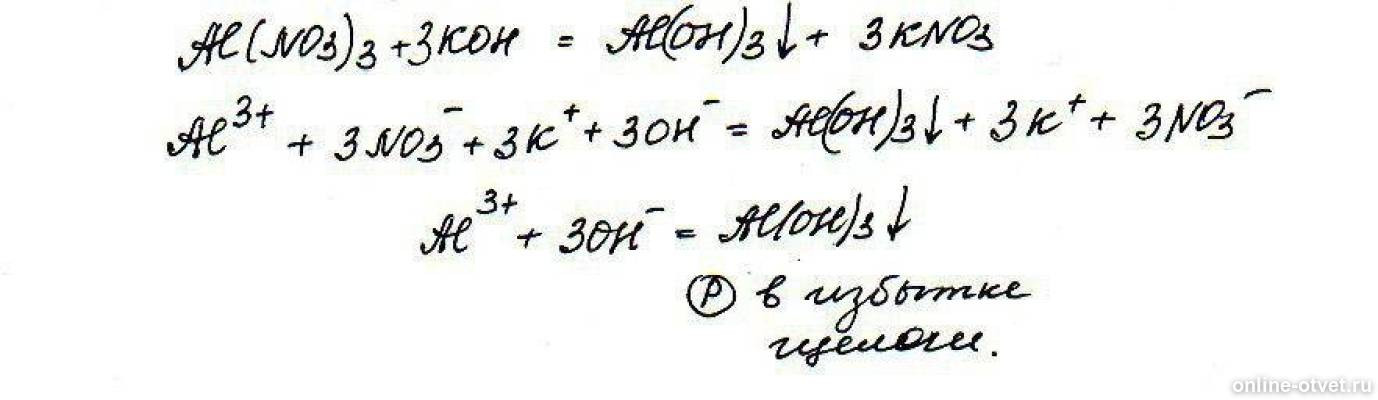 Al(NO3)3 + 3KOH = Al(OH)3↓ + 3KNO3
Al³⁺ + 3NO3⁻ + 3K⁺ + 3OH⁻ = Al(OH)3↓ + 3K⁺ + 3NO3⁻
Al³⁺ + 3OH⁻ = Al(OH)3↓
Ⓟ в избытке
щелочи.
online-otvet.ru